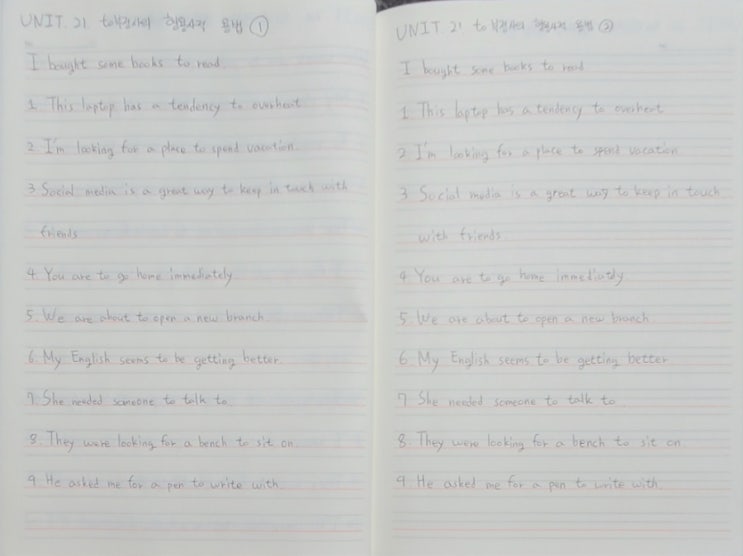 UNIT. 21 to부정사의 형용사적 용법 ①
I bought some books to read.
1. This laptop has a tendency to overheat
2. I'm looking for a place to spend vacation.
3 Social media is a great way to keep in touch with
friends
4. You are to go home immediately.
5. We are about to open a new branch.
6. My English seems to be getting better.
7. She needed someone to talk to.
8. They were looking for a bench to sit on.
9. He asked me for a pen to write with.
UNIT. 21 to부정사의 형용사적 용법 ②
I bought some books to read.
1. This laptop has a tendency to overheat
2 I'm looking for a place to spend vacation.
3 Social media is a great way to keep in touch
with friends.
4 You are to go home immediatly.
5. We are about to open a new branch.
6. My English seems to be getting better
7 She needed someone to talk to.
8. They were looking for a bench to sit on.
9. He asked me for a pen to write with.